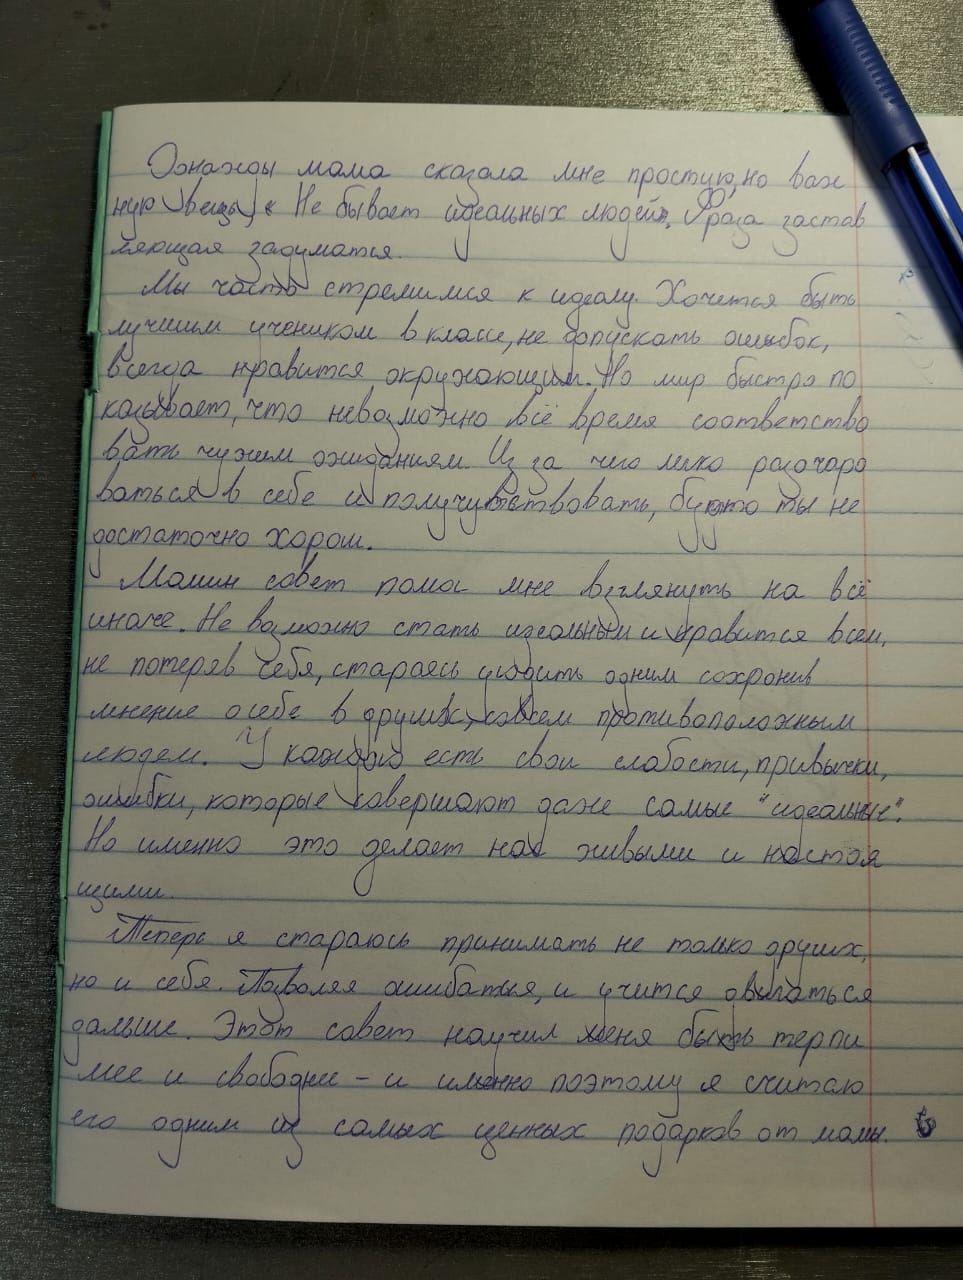 Однажды мама сказала мне простую, но важ
ную вещь, « Не бывает идеальных людей». Фраза застав
ляющая задуматся.
Мы часто стремимся к идеалу. Хочется быть
лучшим учеником в классе, не допускать ошыбок,
всегда нравится окружающим. Но мир быстро по
казывает, что невозможно всё время соответство
вать чужим ожиданиям. Из за чего легко разочаро
ваться в себе и почувствовать, будто ты не
достаточно хорош.
Мамин совет помог мне взглянуть на всё
иначе. Не возможно стать идеальным и нравится всем,
не потеряв себя, стараясь угодить одним сохронив
мнение о себе в других, совсем противоположным
людем. У каждого есть свои слабости, привычки,
ошибки, которые совершают даже самые "идеальные".
Но именно это делает нас живыми и настоя
щими.
Теперь я стараюсь принимать не только других,
но и себя. Позволяя ошибаться, и учится двигаться
дальше. Этот совет научил меня быть терпи
мее и свободнее – и именно поэтому я считаю
его одним из самых ценных подарков от мамы.